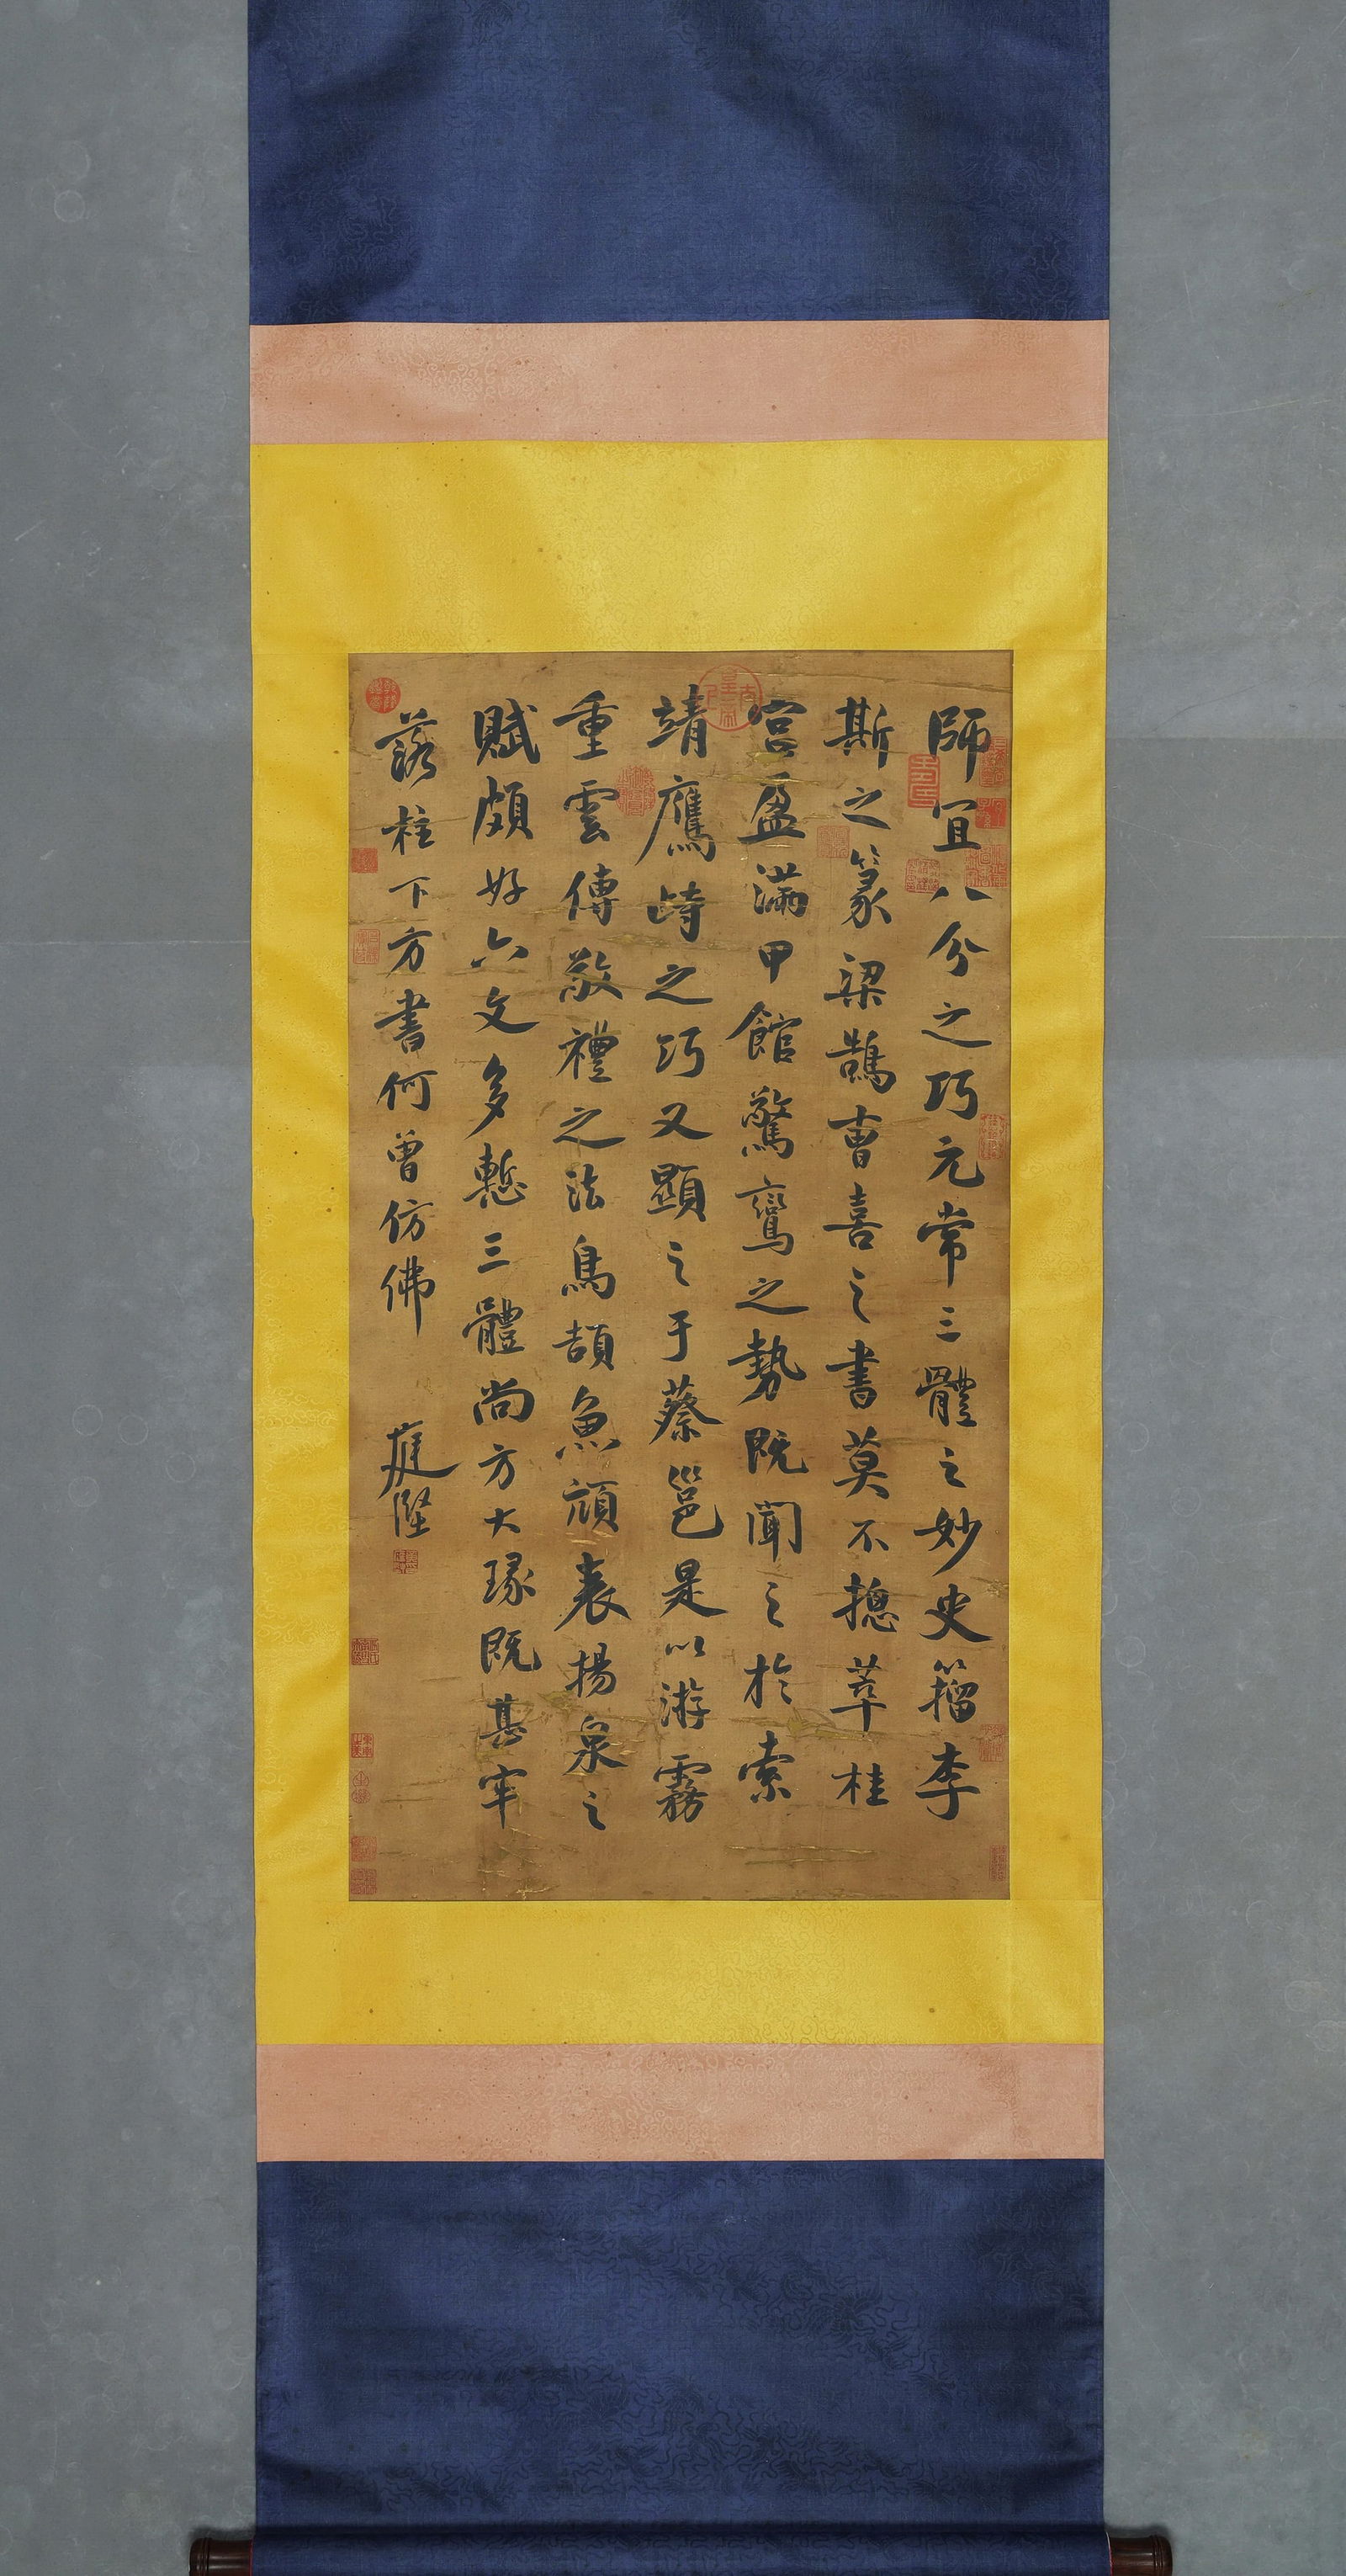 師宜八分之巧元常三體之妙史籀李
斯之篆梁鵠曹喜之書莫不摠萃桂
宮盈滿甲館驚鸞之勢既聞之於索
靖鷹峙之巧又顯之于蔡邕是以游霧
重雲傳敬禮之法鳥頡魚頏表揚泉之
賦頗好六文多慙三體尚方大瑑既甚牢
落柱下方書何曾仿佛
庭堅